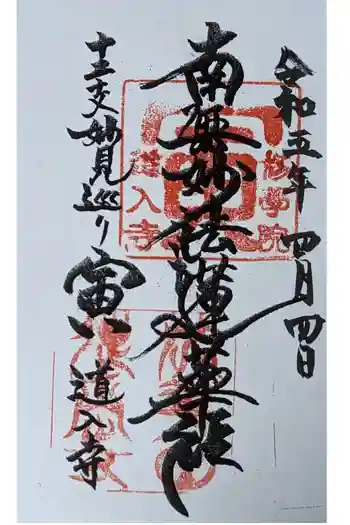 令和五年 四月四日
南無妙法蓮華経
十二支妙見巡り 寅 道入寺
道入寺